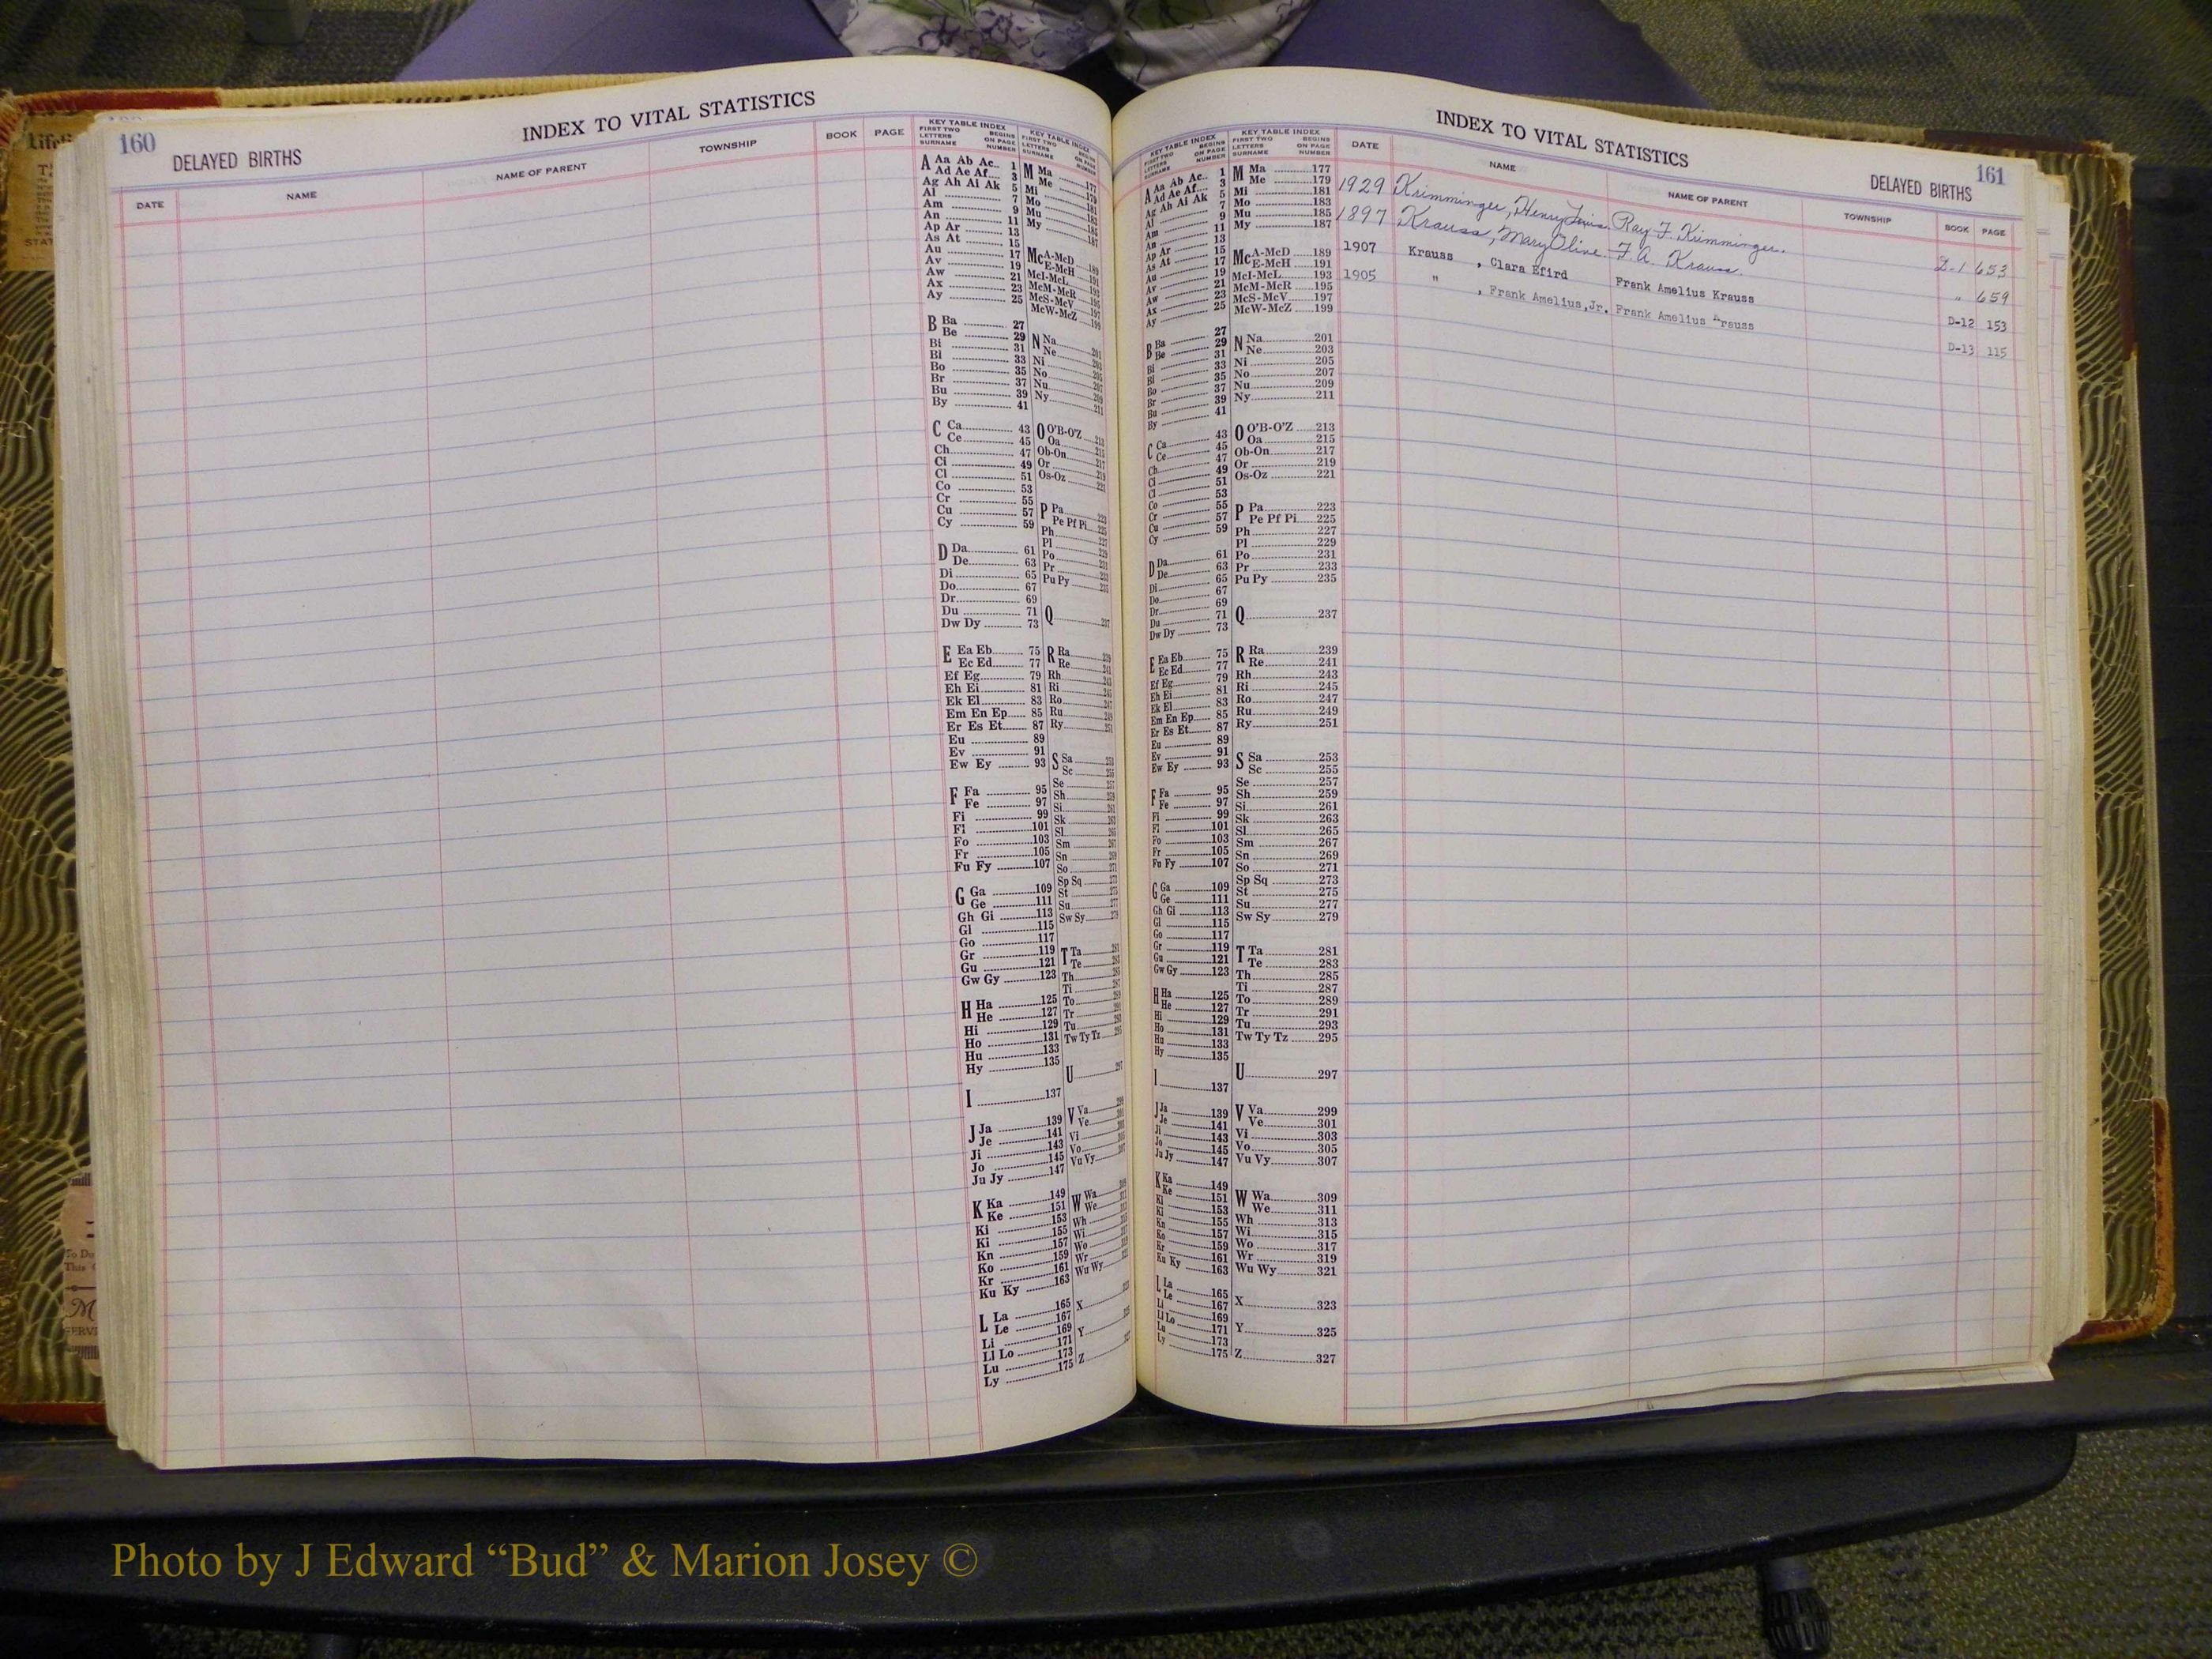 160
INDEX TO VITAL STATISTICS
DELAYED BIRTHS
DATE NAME NAME OF PARENT TOWNSHIP BOOK PAGE
KEY TABLE INDEX
FIRST TWO LETTERS SURNAME BEGINS ON PAGE NUMBER
A Aa Ab Ac 1
Ad Ae Af 3
Ag Ah Ai Ak 5
Al 7
Am 9
An 11
Ap Ar 13
As At 15
Au 17
Av 19
Aw 21
Ax 23
Ay 25
B Ba 27
Be 29
Bi 31
Bl 33
Bo 35
Br 37
Bu 39
By 41
C Ca 43
Ce 45
Ch 47
Ci 49
Cl 51
Co 53
Cr 55
Cu 57
Cy 59
D Da 61
De 63
Di 65
Do 67
Dr 69
Du 71
Dw Dy 73
E Ea Eb 75
Ec Ed 77
Ef Eg 79
Eh Ei 81
Ek El 83
Em En Ep 85
Er Es Et 87
Eu 89
Ev 91
Ew Ey 93
F Fa 95
Fe 97
Fi 99
Fl 101
Fo 103
Fr 105
Fu Fy 107
G Ga 109
Ge 111
Gh Gi 113
Gl 115
Go 117
Gr 119
Gu 121
Gw Gy 123
H Ha 125
He 127
Hi 129
Ho 131
Hu 133
Hy 135
I 137
J Ja 139
Je 141
Ji 143
Jo 145
Ju Jy 147
K Ka 149
Ke 151
Ki 153
Ki 155
Kn 157
Ko 159
Kr 161
Ku Ky 163
L La 165
Le 167
Li 169
Ll Lo 171
Lu 173
Ly 175
161
INDEX TO VITAL STATISTICS
DELAYED BIRTHS
KEY TABLE INDEX
FIRST TWO LETTERS SURNAME BEGINS ON PAGE NUMBER
M Ma 177
Me 179
Mi 181
Mo 183
Mu 185
My 187
Mc A-McD 189
E-McH 191
McI-McL 193
McM-McR 195
McS-McV 197
McW-McZ 199
N Na 201
Ne 203
Ni 205
No 207
Nu 209
Ny 211
O O'B-O'Z 213
Oa 215
Ob-On 217
Or 219
Os-Oz 221
P Pa 223
Pe Pf Pi 225
Ph 227
Pl 229
Po 231
Pr 233
Pu Py 235
Q 237
R Ra 239
Re 241
Rh 243
Ri 245
Ro 247
Ru 249
Ry 251
S Sa 253
Sc 255
Se 257
Sh 259
Si 261
Sk 263
Sl 265
Sm 267
Sn 269
So 271
Sp Sq 273
St 275
Su 277
Sw Sy 279
T Ta 281
Te 283
Th 285
Ti 287
To 289
Tr 291
Tu 293
Tw Ty Tz 295
U 297
V Va 299
Ve 301
Vi 303
Vo 305
Vu Vy 307
W Wa 309
We 311
Wh 313
Wi 315
Wo 317
Wr 319
Wu Wy 321
X 323
Y 325
Z 327
DATE NAME NAME OF PARENT TOWNSHIP BOOK PAGE
1929 Krimminger, Henry Lewis Ray F. Krimminger. D-1 653
1897 Krauss, Mary Olive F. A. Krauss " 659
1907 Krauss , Clara Efird Frank Amelius Krauss D-12 153
1905 " , Frank Amelius, Jr. Frank Amelius Krauss D-13 115
Photo by J Edward “Bud” & Marion Josey ©